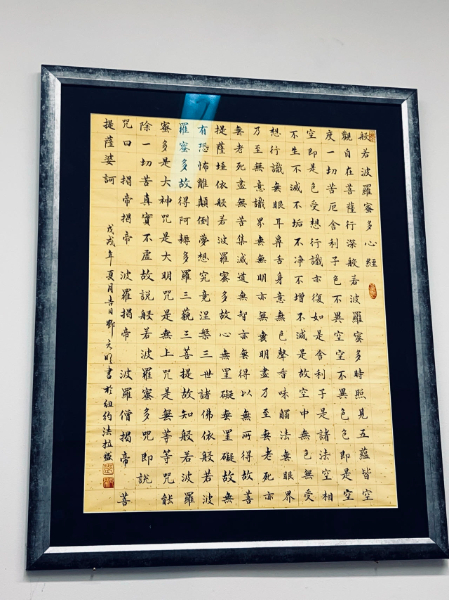 般若波羅蜜多心經
觀自在菩薩行深般若波羅蜜多時照見五蘊皆空
度一切苦厄舍利子色不異空空不異色色即是空
空即是色受想行識亦復如是舍利子是諸法空相
不生不滅不垢不淨不增不減是故空中無色無受
想行識無眼耳鼻舌身意無色聲香味觸法無眼界
乃至無意識界無無明亦無無明盡乃至無老死亦
無老死盡無苦集滅道無智亦無得以無所得故菩
提薩埵依般若波羅蜜多故心無罣礙無罣礙故無
有恐怖離顛倒夢想究竟涅槃三世諸佛依般若波
羅蜜多故得阿耨多羅三藐三菩提故知般若波羅
蜜多是大神咒是大明咒是無上咒是無等等咒能
除一切苦真實不虛故說般若波羅蜜多咒即說
咒曰 揭帝揭帝 波羅揭帝 波羅僧揭帝 菩
提薩婆訶
戊戌年夏月吉日鄧文書於紐約法拉盛